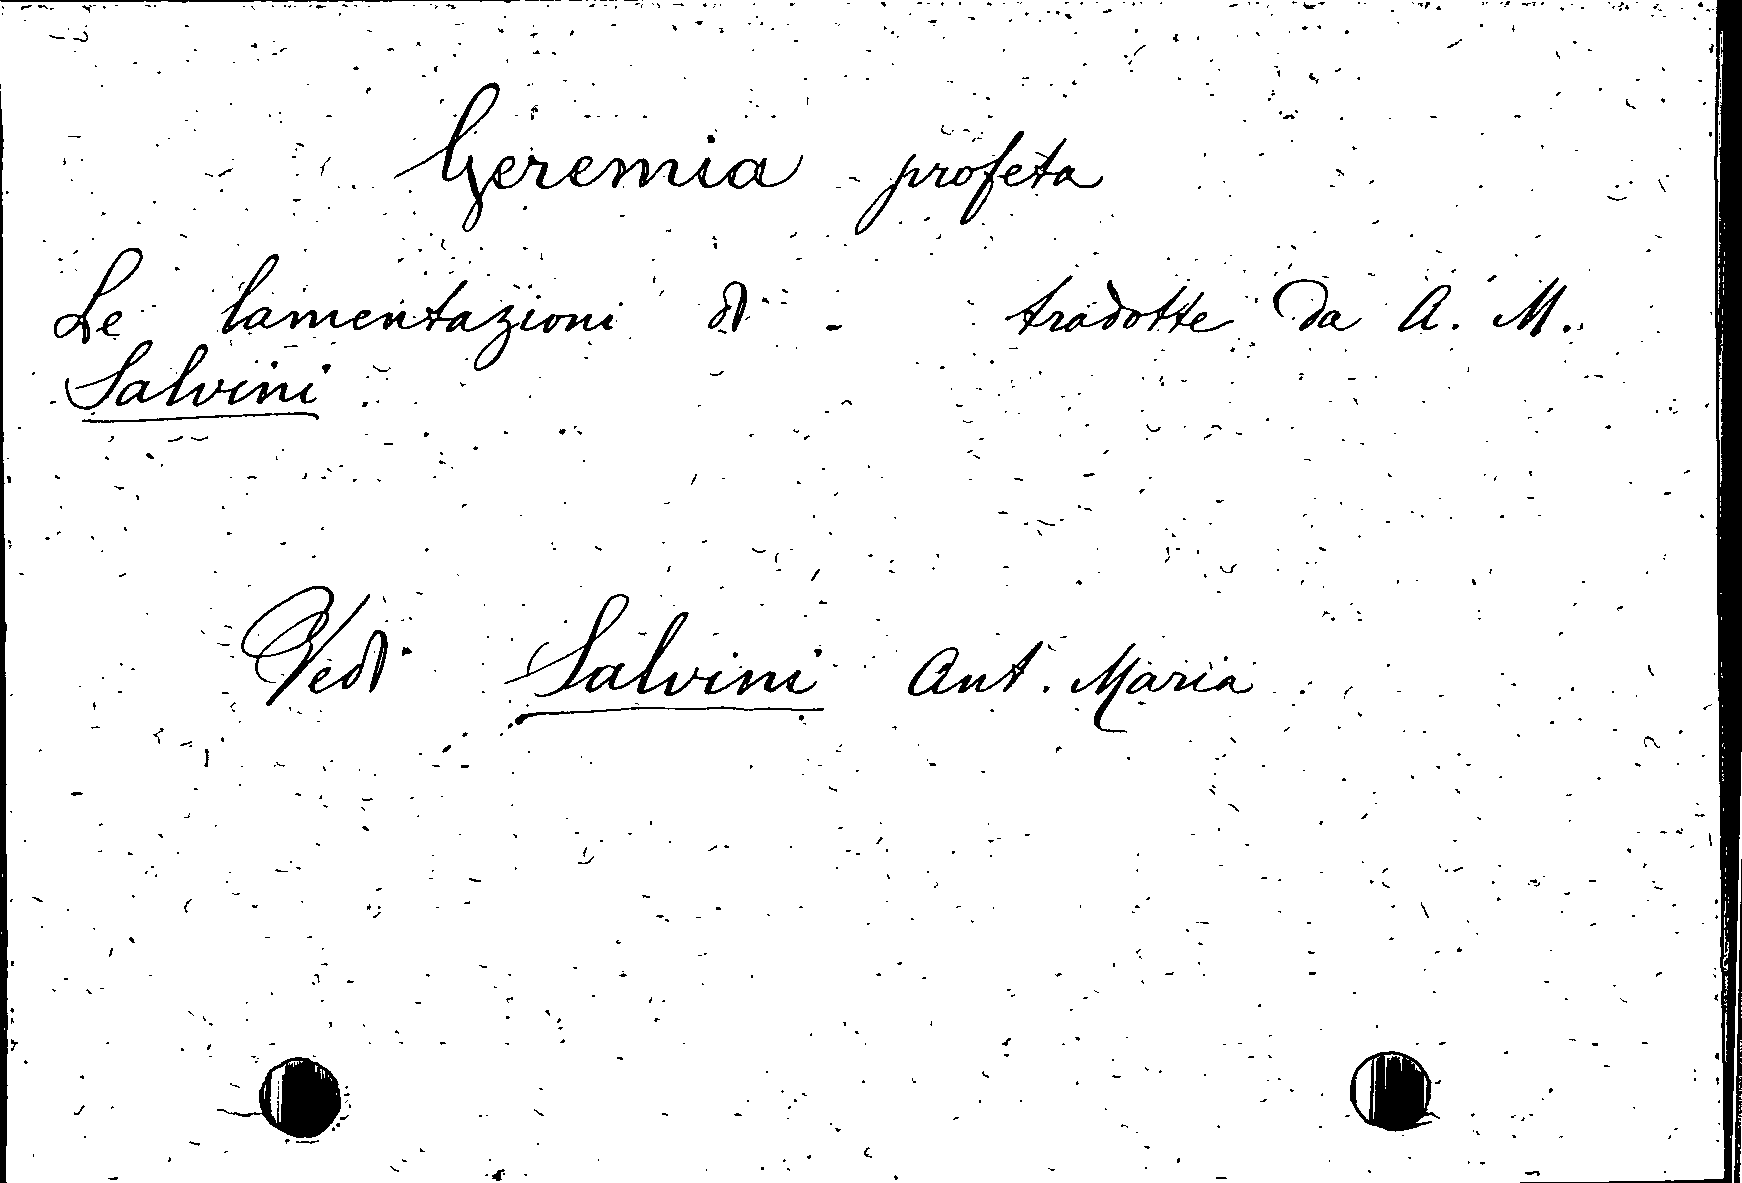 Geremia profeta
Le lamentazioni di - tradotte da A. M.
Salvini
Vedi Salvini Ant. Maria